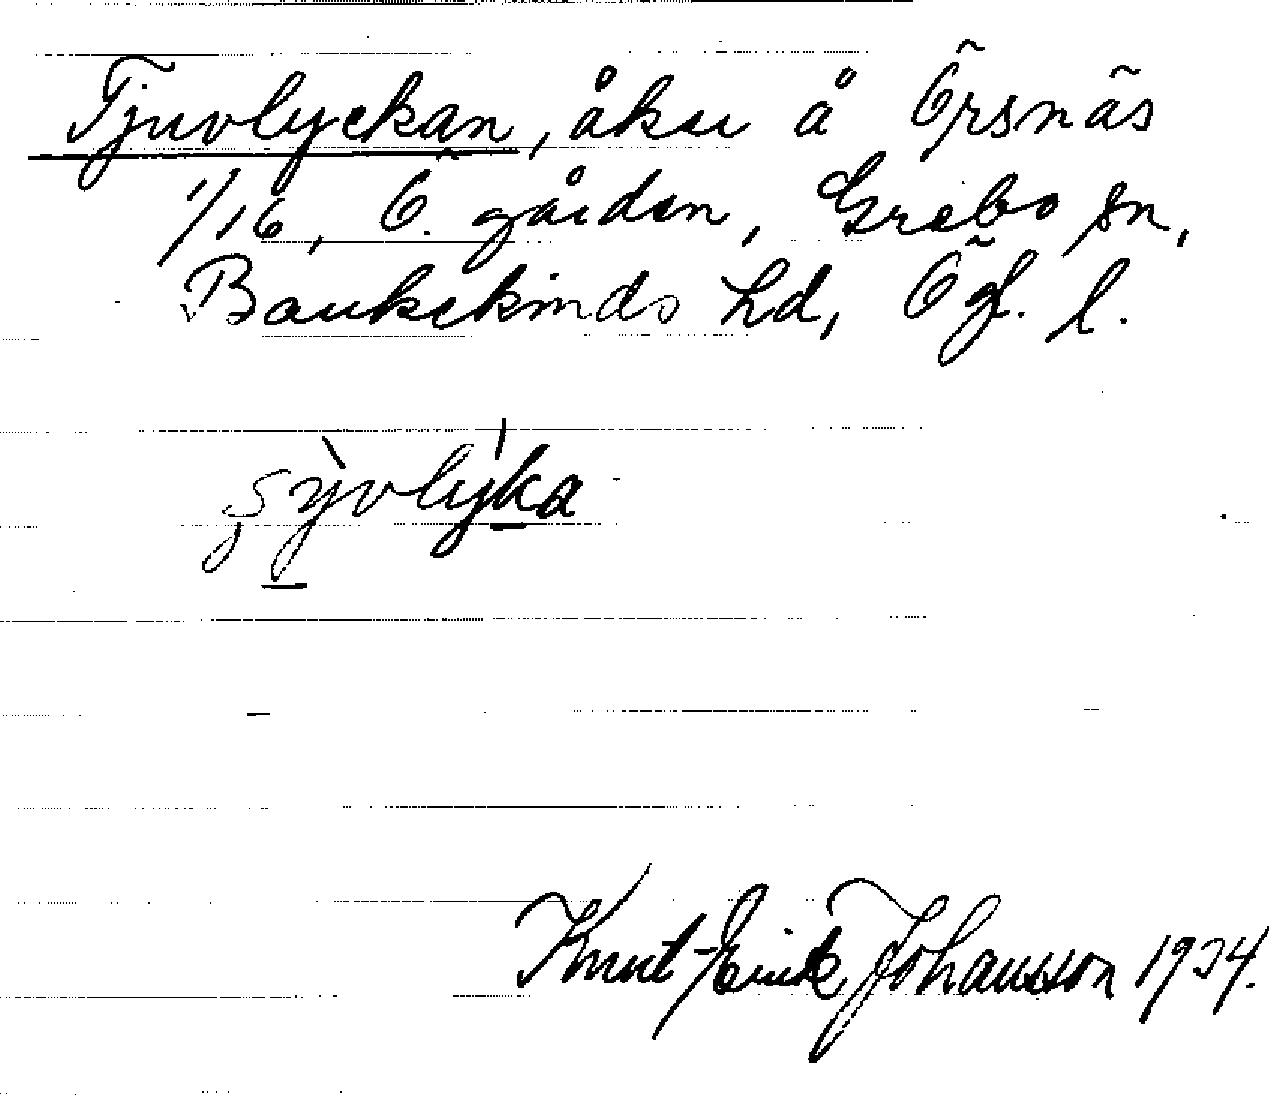 Tjuvlyckan, åker å Örsnäs
1/16, Ö. gården, Grebo sn,
Bankekinds hd, Ögl. l.
ȿỳvly̍ka
Knut-Erik Johansson 1934.